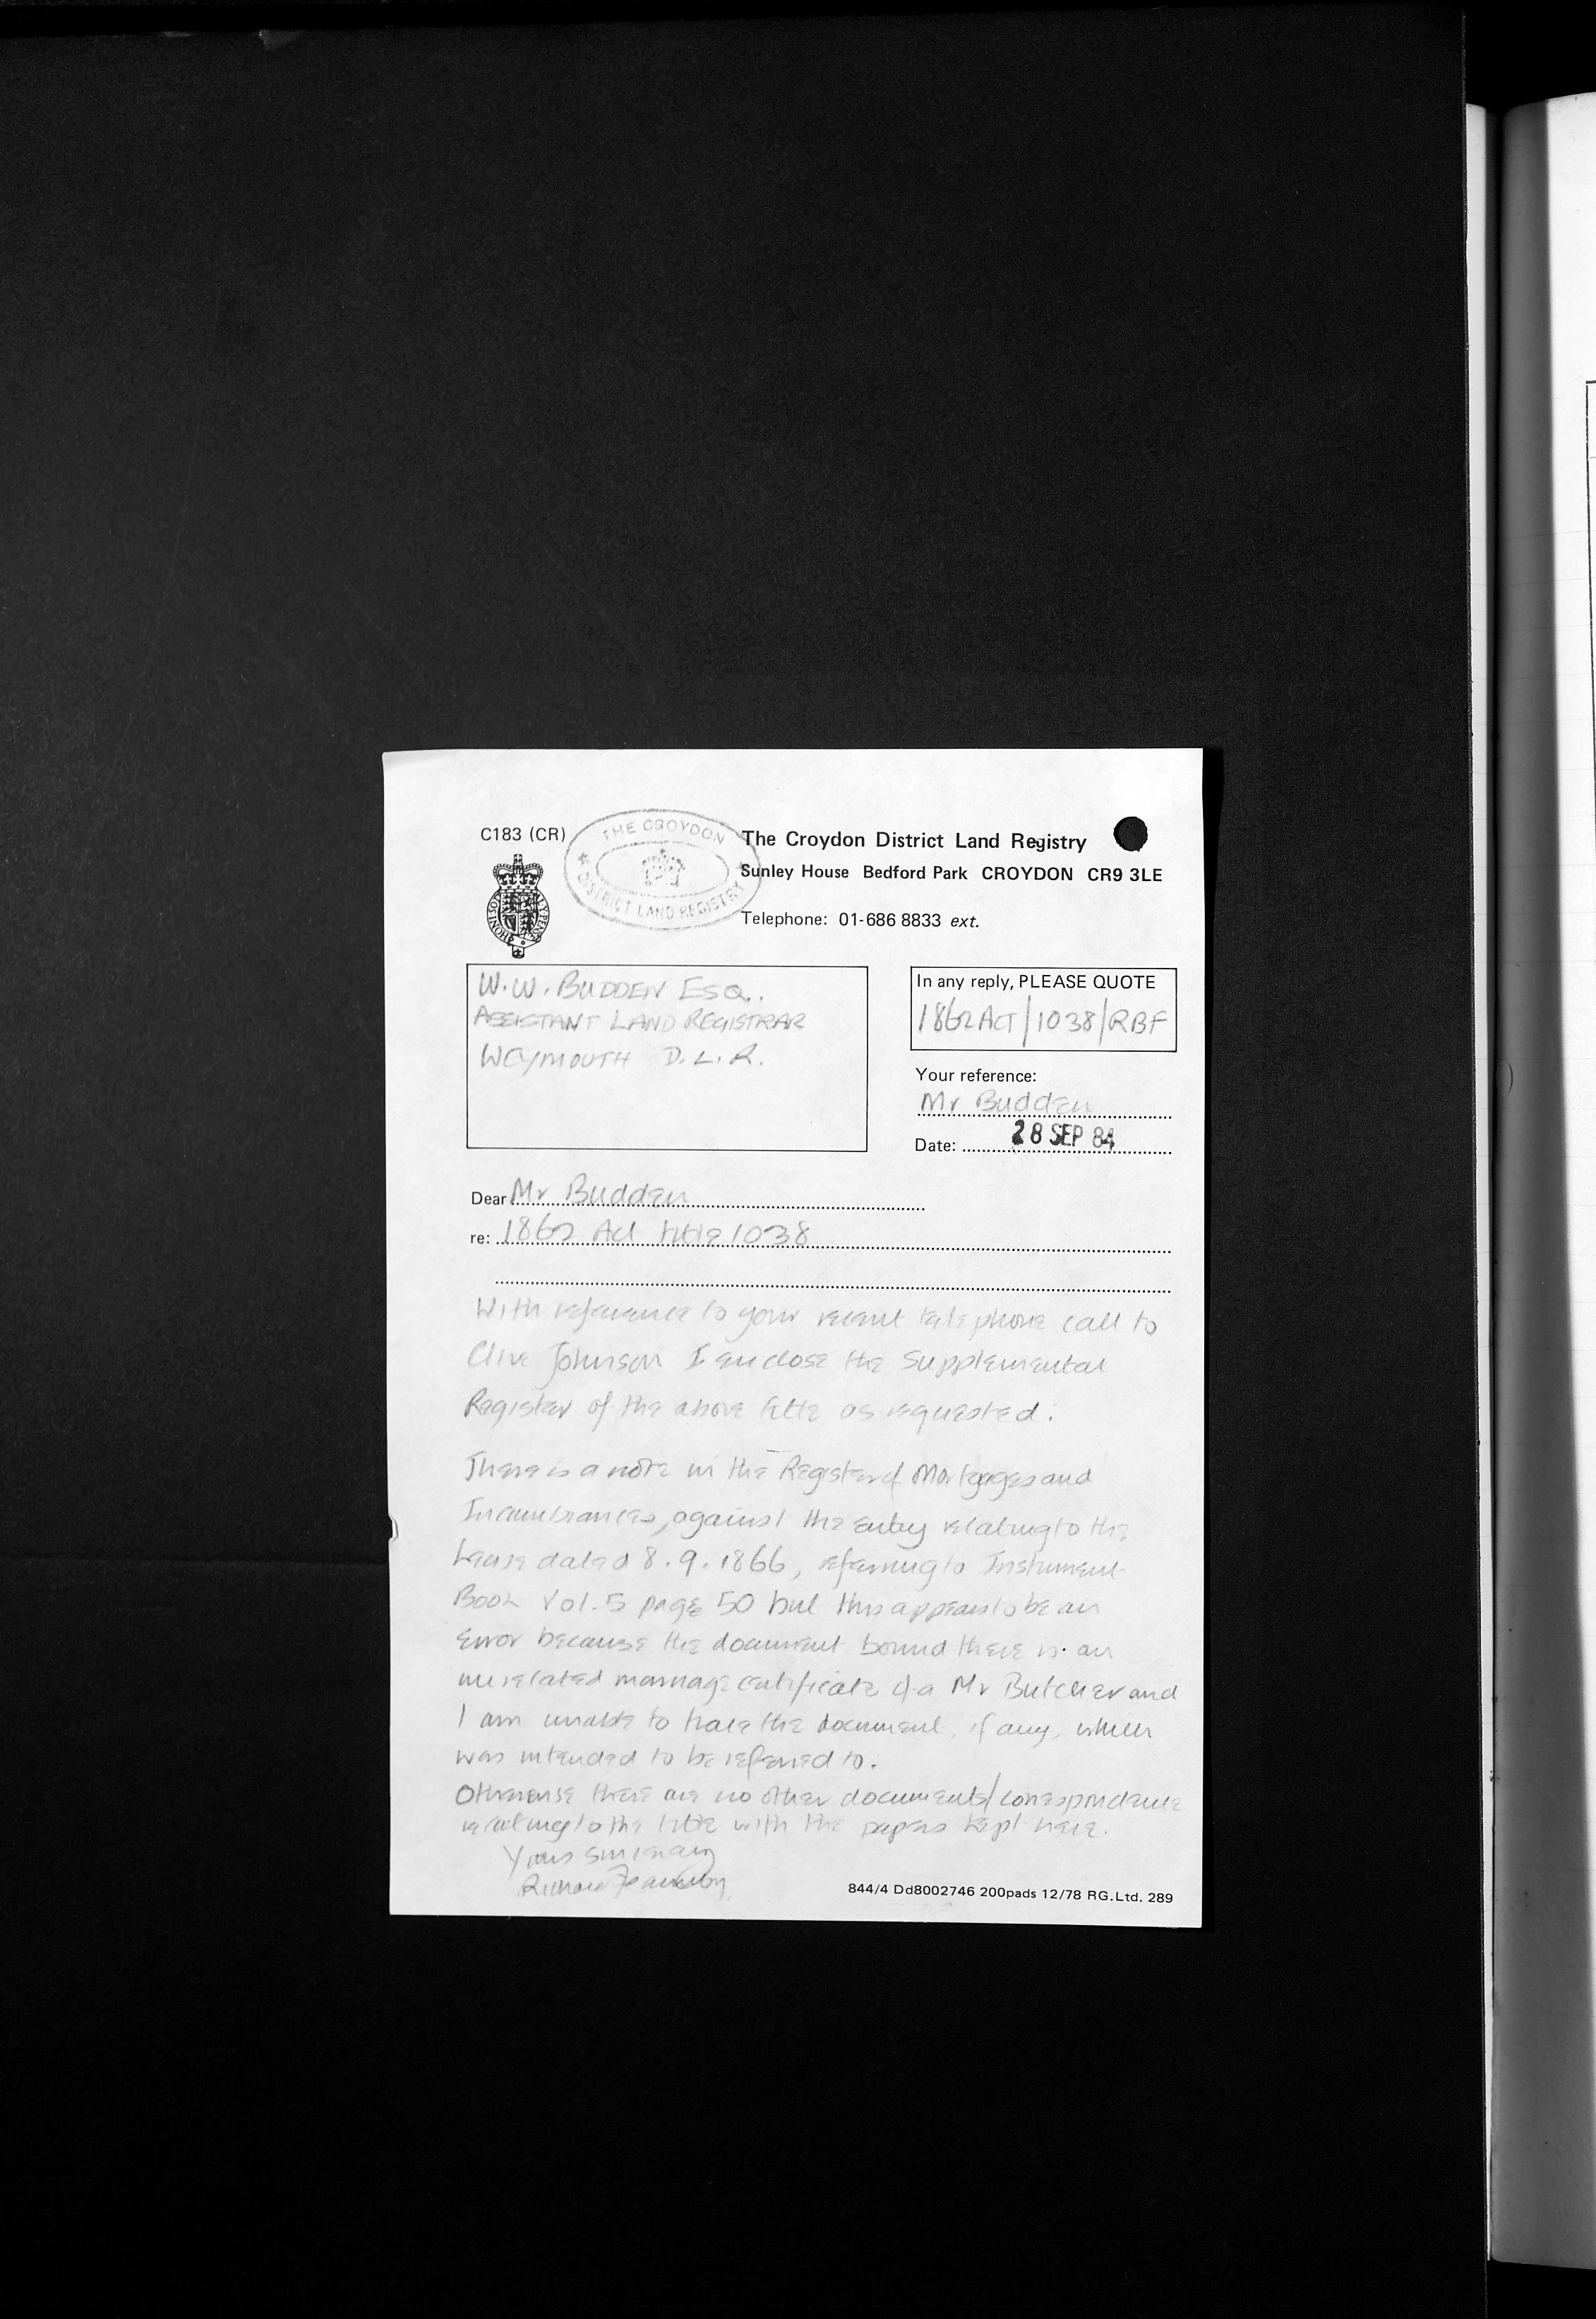 C183 (CR)
THE CROYDON
DISTRICT LAND REGISTRY
The Croydon District Land Registry
Sunley House Bedford Park CROYDON CR9 3LE
Telephone: 01-686 8833 ext.
W.W. BUDDEN ESQ.
ASSISTANT LAND REGISTRAR
WEYMOUTH D.L.R.
In any reply, PLEASE QUOTE
1862 ACT/1038/RBF
Your reference:
Mr Budden
Date: 28 SEP 84
Dear Mr Budden
re: 1862 Act title 1038
With reference to your recent telephone call to
Clive Johnson I enclose the Supplemental
Register of the above title as requested.
There is a note in the Register of Mortgages and
Incumbrances, against the entry relating to the
Lease dated 8.9.1866, referring to Instrument
Book Vol.5 page 50 but this appears to be an
error because the document bound there is an
unrelated marriage certificate of a Mr Butcher and
I am unable to trace the document, if any, which
was intended to be referred to.
Otherwise there are no other documents/correspondence
relating to the title with the papers kept here.
Yours sincerely
Richard
844/4 Dd8002746 200pads 12/78 RG.Ltd. 289